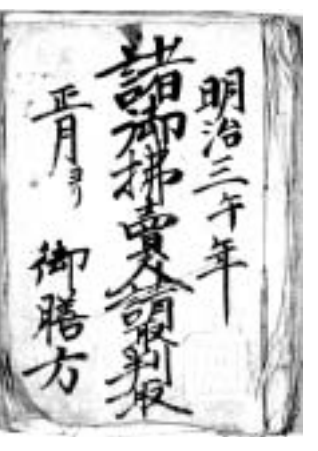 明治三午年
諸御拂賣人請取判取
正月ヨリ 御膳方